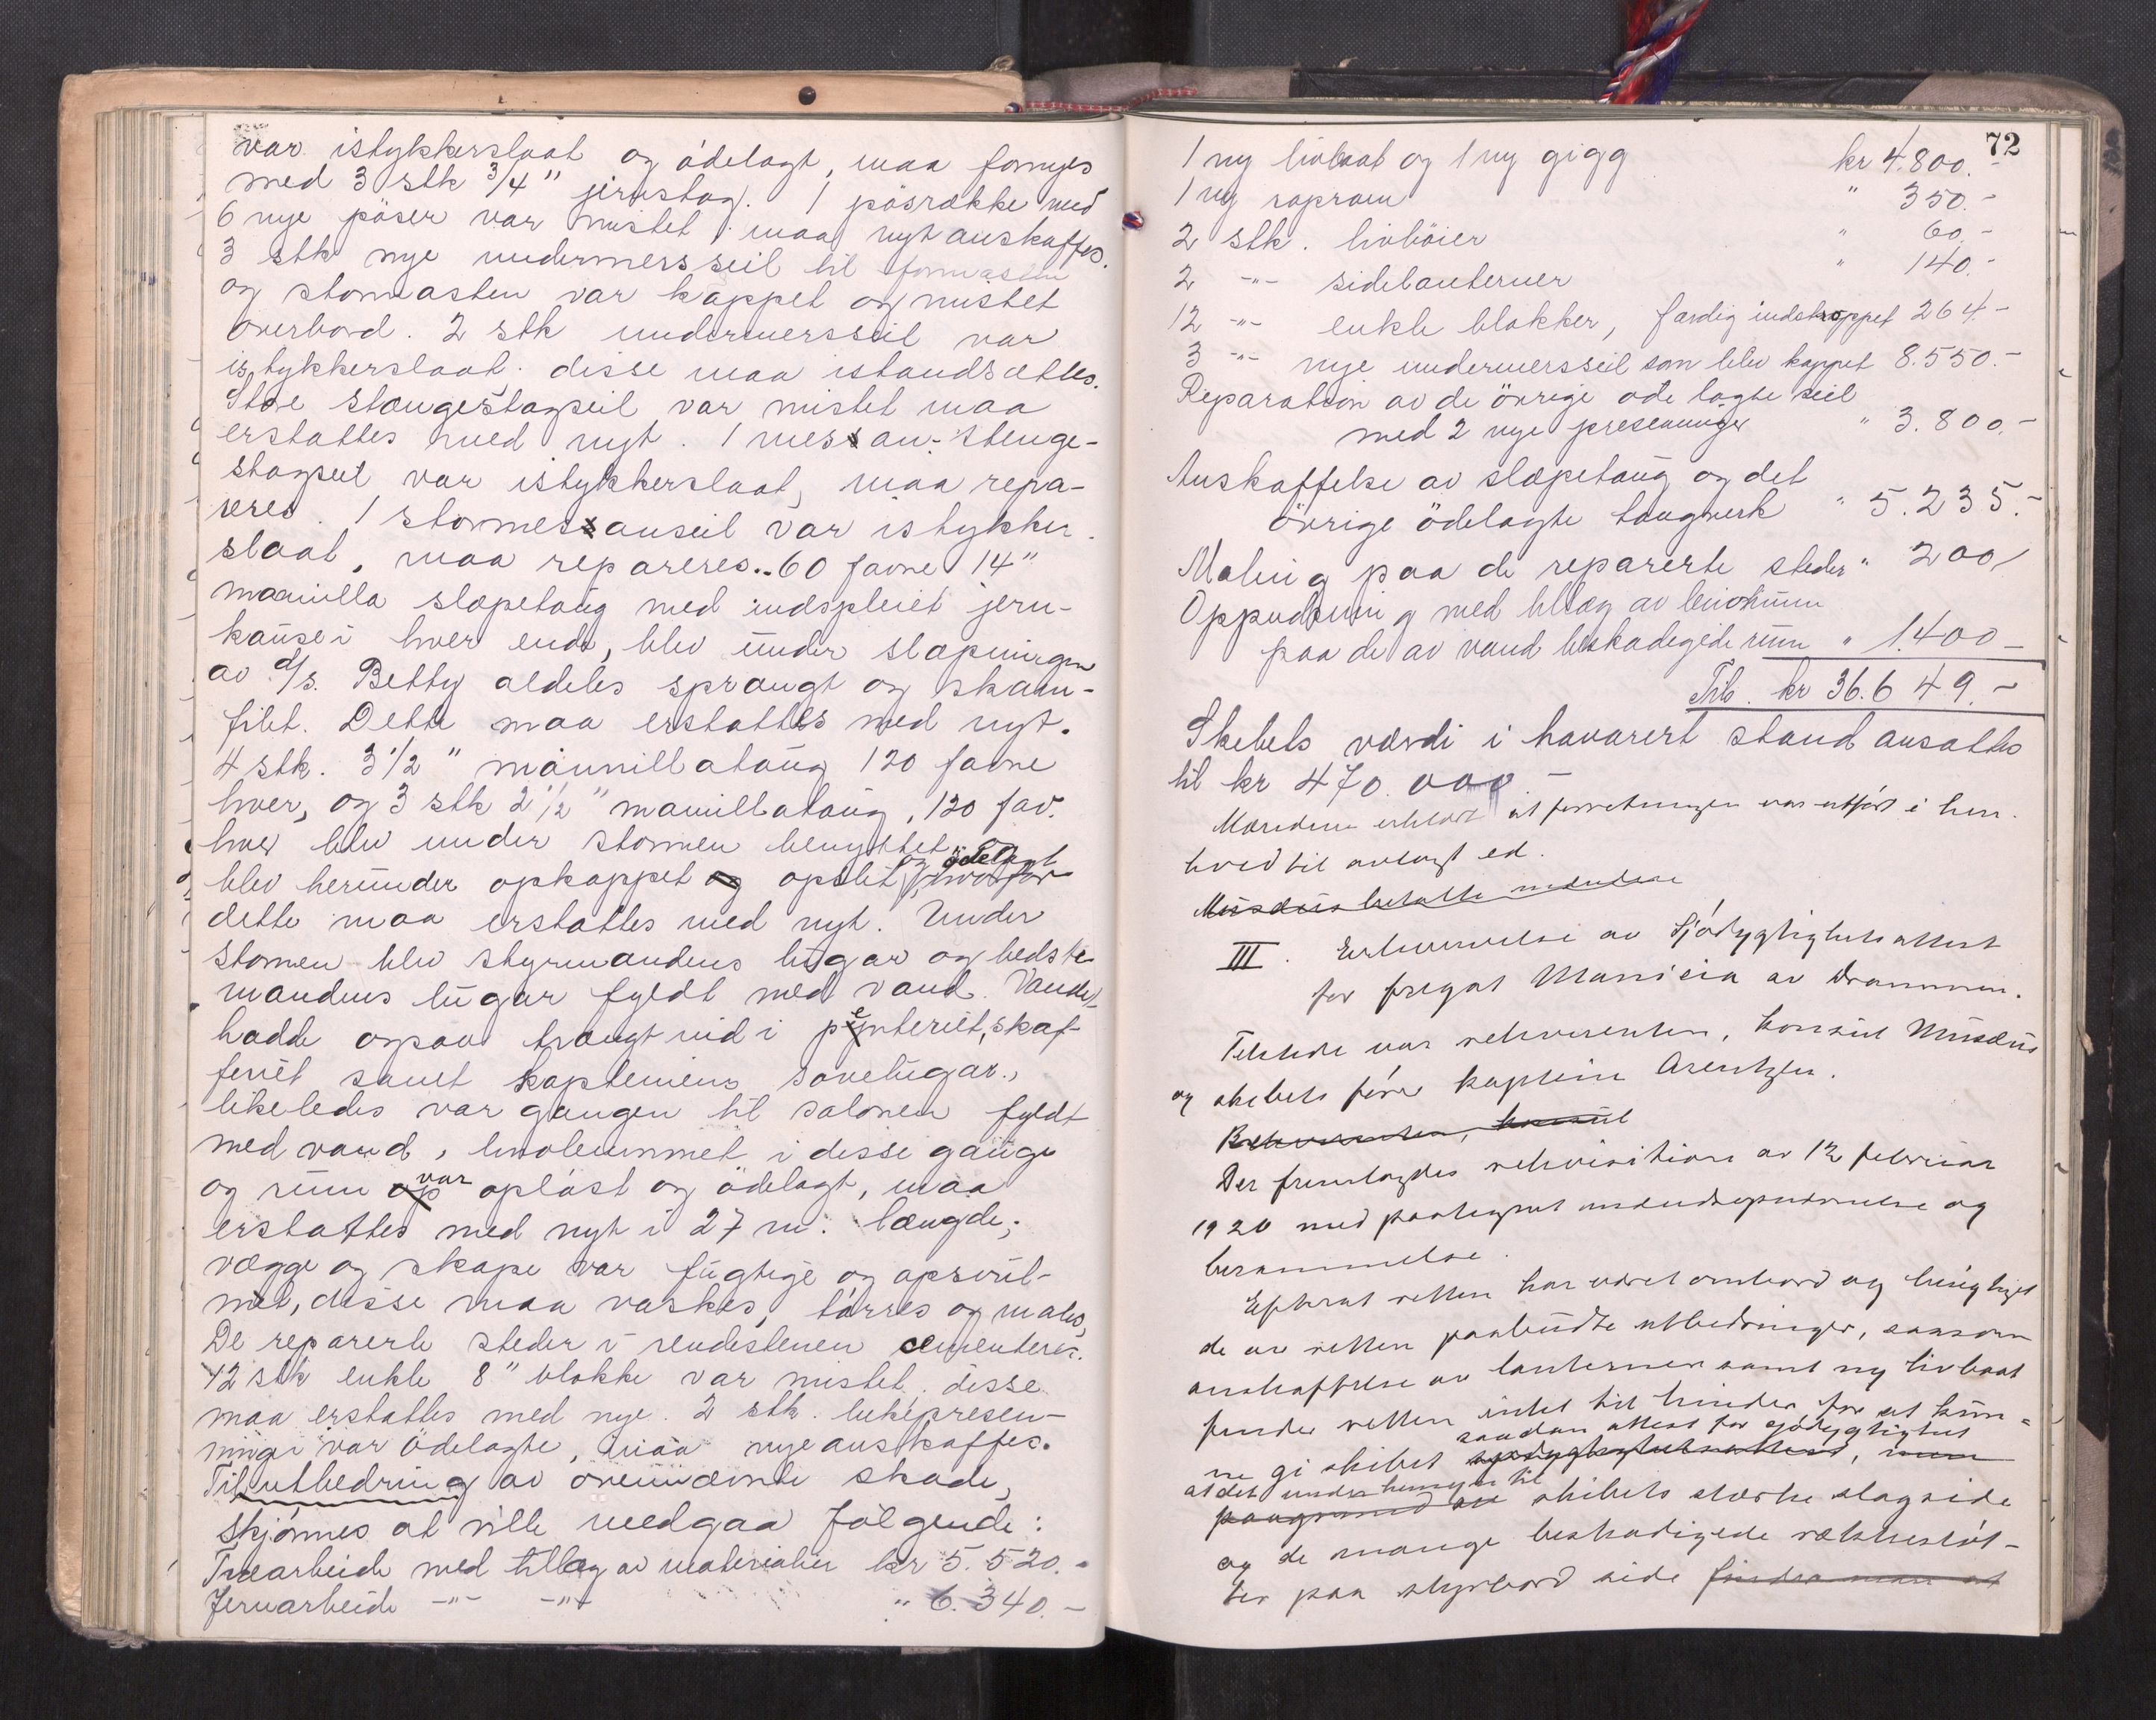 var istykkerslaat og ödelagt, maa fornyes
med 3 stk 3/4" jernstag. 1 pösrække med
6 nye pöser var mistet, maa nyt anskaffes.
3 stk nye undermersseil til formasten
og stormasten var kappet og mistet
overbord. 2 stk undermersseil var
istykkerslaat, disse maa istandsættes.
Store stangestagseil var mistet maa
erstattes med nyt. 1 messan-stenge-
stagseil var istykkerslaat, maa repa-
reres. 1 stormessanseil var istykker
slaat, maa repareres. 60 favne 14"
manilla slæpetaug med indspleiset jern-
kause i hver ende, blev under slæpningen
av d/s. Betty aldeles sprængt og skam-
filet. Dette maa erstattes med nyt.
4 stk. 3 1/2" mannillataug 120 favne
hver, og 3 stk 2 1/2" manillataug, 120 fav.
hver blev under stormen benyttet og
blev herunder opkappet og opslitt og ödelagt, hvorfor
dette maa erstattes med nyt. Under
stormen blev styrmandens lugar og bedste-
mandens lugar fyldt med vand. Vandet
hadde ogsaa trængt ind i penteriet, skaf-
feriet samt kapteinens sovelugar.,
likeledes var gangen til salonen fyldt
med vand, linoleummet i disse gange
og rum op var oplöst og ödelagt, maa
erstattes med nyt i 27 m. længde;
vægge og skape var fugtige og opsvul-
met, disse maa vaskes, törres og males,
De reparerte steder i rendestenen cementeres.
12 stk enkle 8" blokke var mistet, disse
maa erstattes med nye. 2 stk. lukepresen-
ninger var ödelagte, maa nye anskaffes.
Til utbedring av ovennævnte skade,
skjönnes at ville medgaa fölgende:
Træarbeide med tillæg av materialier kr 5.520.-
Jernarbeide -"- -"- " 6.340.-
72
1 ny livbaat og 1 ny gigg kr 4.800.-
1 ny sopram " 350.-
2 stk. livböier " 60.-
2 -"- sidelanterner " 140.-
12 -"- enkle blokker, færdig indstroppet 264.-
3 -"- nye undermersseil som blev kappet 8.550.-
Reparation av de övrige ödelagte seil
med 2 nye presenninger " 3.800.-
Anskaffelse av slæpetaug og det
övrige ödelagte taugverk " 5.235.-
Maling paa de reparerte steder " 200,-
Oppudsning med tillæg av linoleum
paa de av vand beskadigede rum " 1.400 -
Tils. kr 36.649.-
Skibets værdi i havarert stand ansattes
til kr 470.000 -
Mændene erklærte at forretningen var utført i hen-
hold til avlagt ed.
Musæus betalte mændene
III. Erhvervelse av Sjödygtighetsattest
for fregat Maricia av Drammen.
Tilstede var rekvirenten, konsul Musæus
og skibets förer kaptein Arentzen.
Rekvirenten, konsul
Der fremlagdes rekvisition av 12 februar
1920 med paategnet mændsopnævnelse og
berammelse.
Efterat retten har været ombord og besigtiget
de av retten paabudte utbedringer, saasom
anskaffelse av lanterner samt ny livbaat
finder retten intet til hinder for at kun-
ne gi skibet saadan attest for sjödygtighet
sjödygtighetsattest, men
at det under hensyn til
paagrund av skibets stærke slagside
og de mange beskadigede rækkestöt-
ter paa styrbord side finder man at